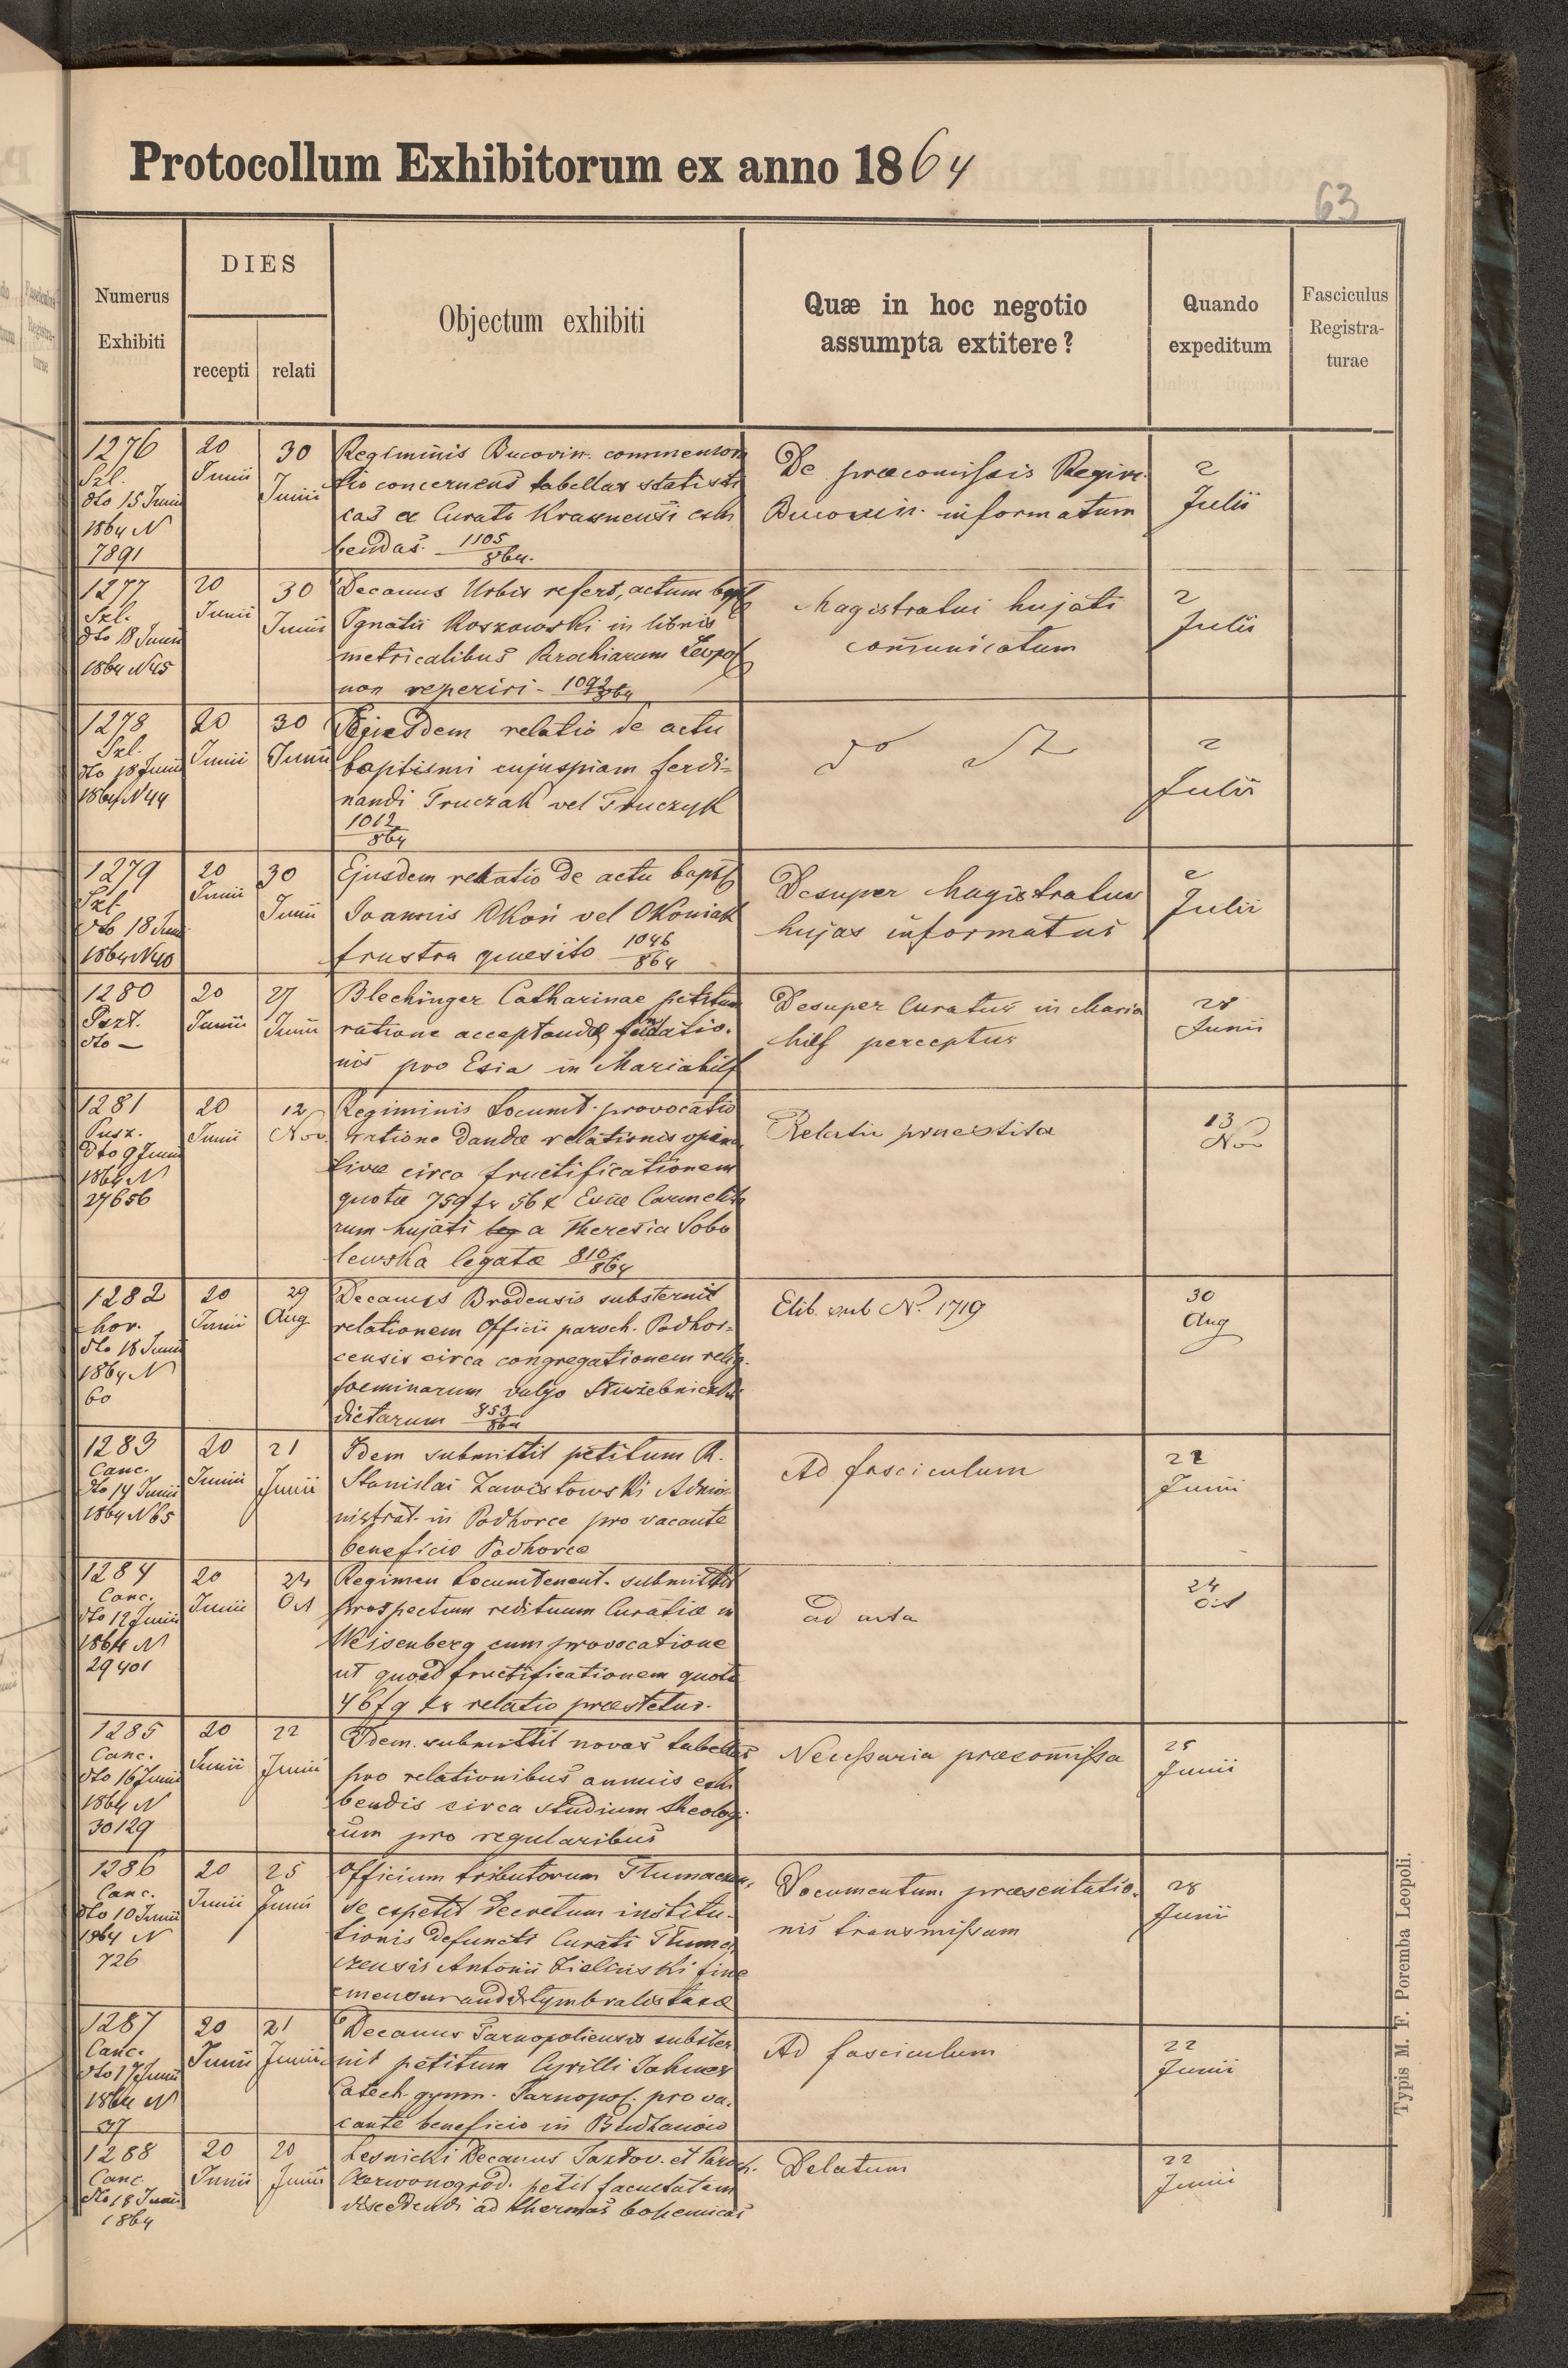 Protocollum Exhibitorum ex anno 1864
63
Numerus Exhibiti
DIES
recepti
relati
Objectum exhibiti
Quæ in hoc negotio
assumpta extitere?
Quando
expeditum
Fasciculus
Registra-
turae
1276
Szl.
dto 15 Junii
1864 N
7891
20
Junii
30
Junii
Regiminis Bucovin.
tio concernens tabellas statisti
cas a Curato Krasnensi exhi
bendas. 1105/864.
De præcomissis Regim.
Bucovin. informatum
2
Julii
1277
Szl.
dto 18 Junii
1864 N45
20
Junii
30
Junii
Decanus Urbis refert, actum bapt
Ignatii Koszowski in libris
metricalibus Parochiarum Leopol
non reperiri - 1092/864
Magistratui hujati
com̄unicatum
2
Julii
1278
Szl.
dto 18 Junii
1864 N44
20
Junii
30
Junii
Ejusdem relatio de actu
baptismi cujuspiam ferdi=
nandi Truczak vel Truczyk
1012/864
do
2
Julii
1279
Szl.
dto 18 Junii
1864 N40
20
Junii
30
Junii
Ejusdem relatio de actu bapt
Joannis Okoń vel Okoniak
frustra quæsito 1046/864
Desuper Magistratus
hujas informatus
2
Julii
1280
Pszt.
dto —
20
Junii
27
Junii
Blechinger Catharinae petitum
ratione acceptandæ fundatio-
nis pro Esia in Mariahilf
Desuper Curatus in Maria
hilf perceptus
28
Junii
1281
Pusz.
dto 9 Junii
1864 N
27656
20
Junii
12
Nov.
Regiminis Locumt. provocatio
ratione dandæ relationis opina
tivæ circa fructificationem
quotæ 759 fr 56 x Esiæ Carmelita
rum hujati a Theresia Sobo
lewska legatæ 810/864
Relatio præstita
13
Nov
1282
hor.
dto 18 Junii
1864 N
60
20
Junii
29
Aug
Decanus Brodensis substernit
relationem Officii paroch. Podhor=
censis circa congregationem relig.
foeminarum vulgo Służebniczki
dictarum 853/864
Elib. sub N. 1719
30
Aug
1283
Canc.
dto 14 Junii
1864 N65
20
Junii
21
Junii
Idem submittit petitum R.
Stanislai Zawistowski Admi
nistrat. in Podhorce pro vacante
beneficio Podhorce
Ad fasciculum
22
Junii
1284
Canc.
dto 12 Junii
1864 N
29401
20
Junii
24
Oct
Regimen Locumtenent. submittit
prospectum redituum Curatiæ in
Weisenberg cum provocatione
ut quoad fructificationem quotæ
46 f 9 kr relatio præstetur.
ad acta
24
Oct
1285
Canc.
dto 16 Junii
1864 N
30129
20
Junii
22
Junii
Idem submittit novas tabellas
pro relationibus annuis exhi
bendis circa studium theologi
cum pro regularibus
Necessaria præcom̄issa
25
Junii
1286
Canc.
dto 10 Junii
1864 N
726
20
Junii
25
Junii
Officium tributorum
se expetit Decretum institu-
tionis defuncti Curati Tłuma
czensis Antonii Zieliński fine
Documentum præsentatio-
nis transmissum
28
Junii
1287
Canc.
dto 17 Junii
1864 N
37
20
Junii
21
Junii
Decanus Tarnopoliensis subster
nit petitum Cyrilli Jahner
Catech. gymn. Tarnopol. pro va-
cante beneficio in Budzanów
Ad fasciculum
22
Junii
1288
Canc.
dto 18 Junii
1864
20
Junii
20
Junii
Lesnicki Decanus Jazłov. et Paroch.
Czerwonogrod. petit facultatem
discedendi ad thermas bohemicas
Delatum
22
Junii
Typis M. F. Poremba Leopoli.